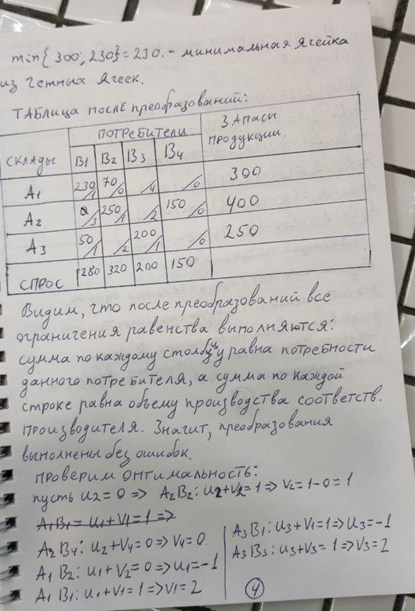 min{300, 230} = 230. - минимальная ячейка
из четных ячеек.
ТАБЛИЦА после преобразований:
СКЛАДЫ ПОТРЕБИТЕЛИ ЗАПАСЫ ПРОДУКЦИИ.
B1 B2 B3 B4
A1 230/1 70/0 /4 /0 300
A2 0/3 250/1 /2 150/0 400
A3 50/1 /2 200/1 /0 250
СПРОС 280 320 200 150
Видим, что после преобразований все
ограничения равенства выполняются:
сумма по каждому столбцу равна потребности
данного потребителя, а сумма по каждой
строке равна объему производства соответств.
производителя. Значит, преобразования
выполнены без ошибок.
Проверим оптимальность:
пусть u2 = 0 => A2B2: u2+v2 = 1 => v2 = 1-0 = 1
A1B1 = u1+v1 = 1 =>
A2B4: u2+v4 = 0 => v4 = 0.
A1B2: u1+v2 = 0 => u1 = -1
A1B1: u1+v1 = 1 => v1 = 2
A3B1: u3+v1 = 1 => u3 = -1
A3B3: u3+v3 = 1 => v3 = 2
4